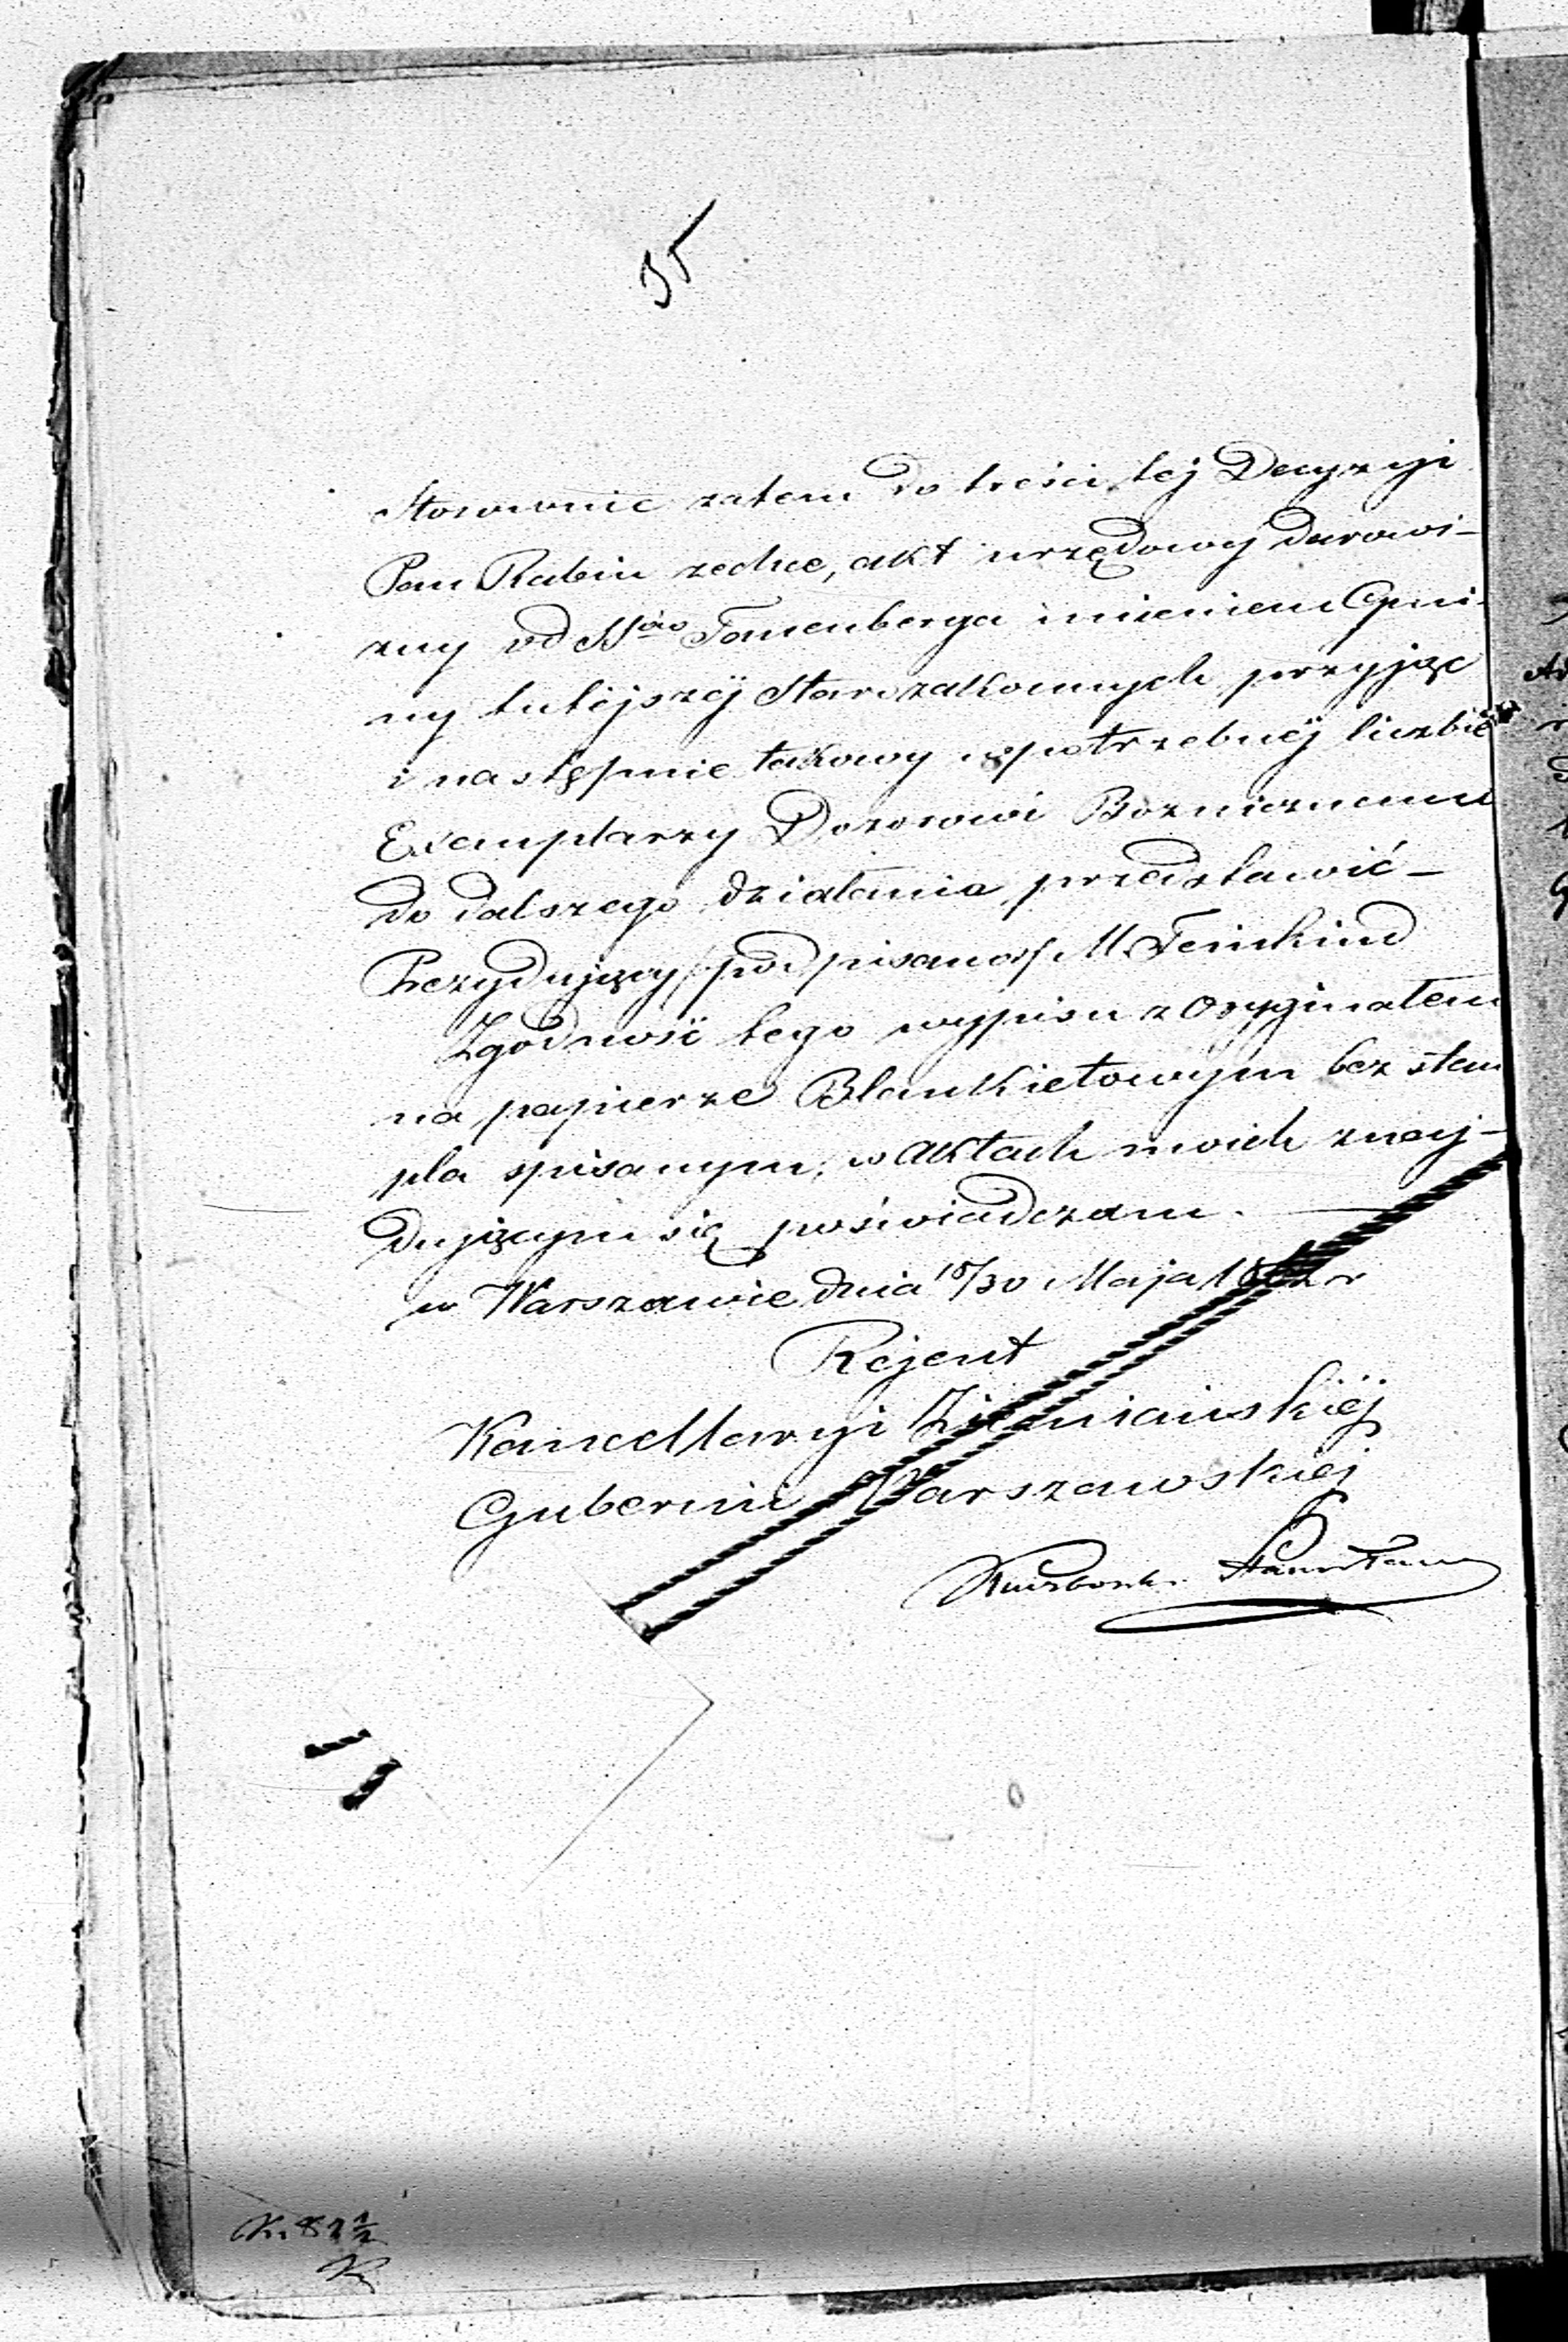 35
Stosownie zatem do treści tej Decyzyi
Pan Rabin zechce, akt urzędowy darowi-
zny od Ssów Tonenberga imieniem Gmi-
ny tutejszéj Starozakonnych przyjąć
i następnie takowy w potrzebnéj liczbie
Exemplarzy Dozorowi Bożniczemu
do dalszego działania przedstawić –
Prezydujący /podpisano/ M. Feinkind
Zgodność tego wypisu z oryginałem
na papierze Blankietowym bez stem
pla spisanym, w aktach moich znaj-
dującym się poświadczam.
w Warszawie dnia 18/30 Maja r
Rejent
Kancellaryi Ziemiańskiéj
Gubernii Warszawskiej
Stanisław
K. 82 1/2